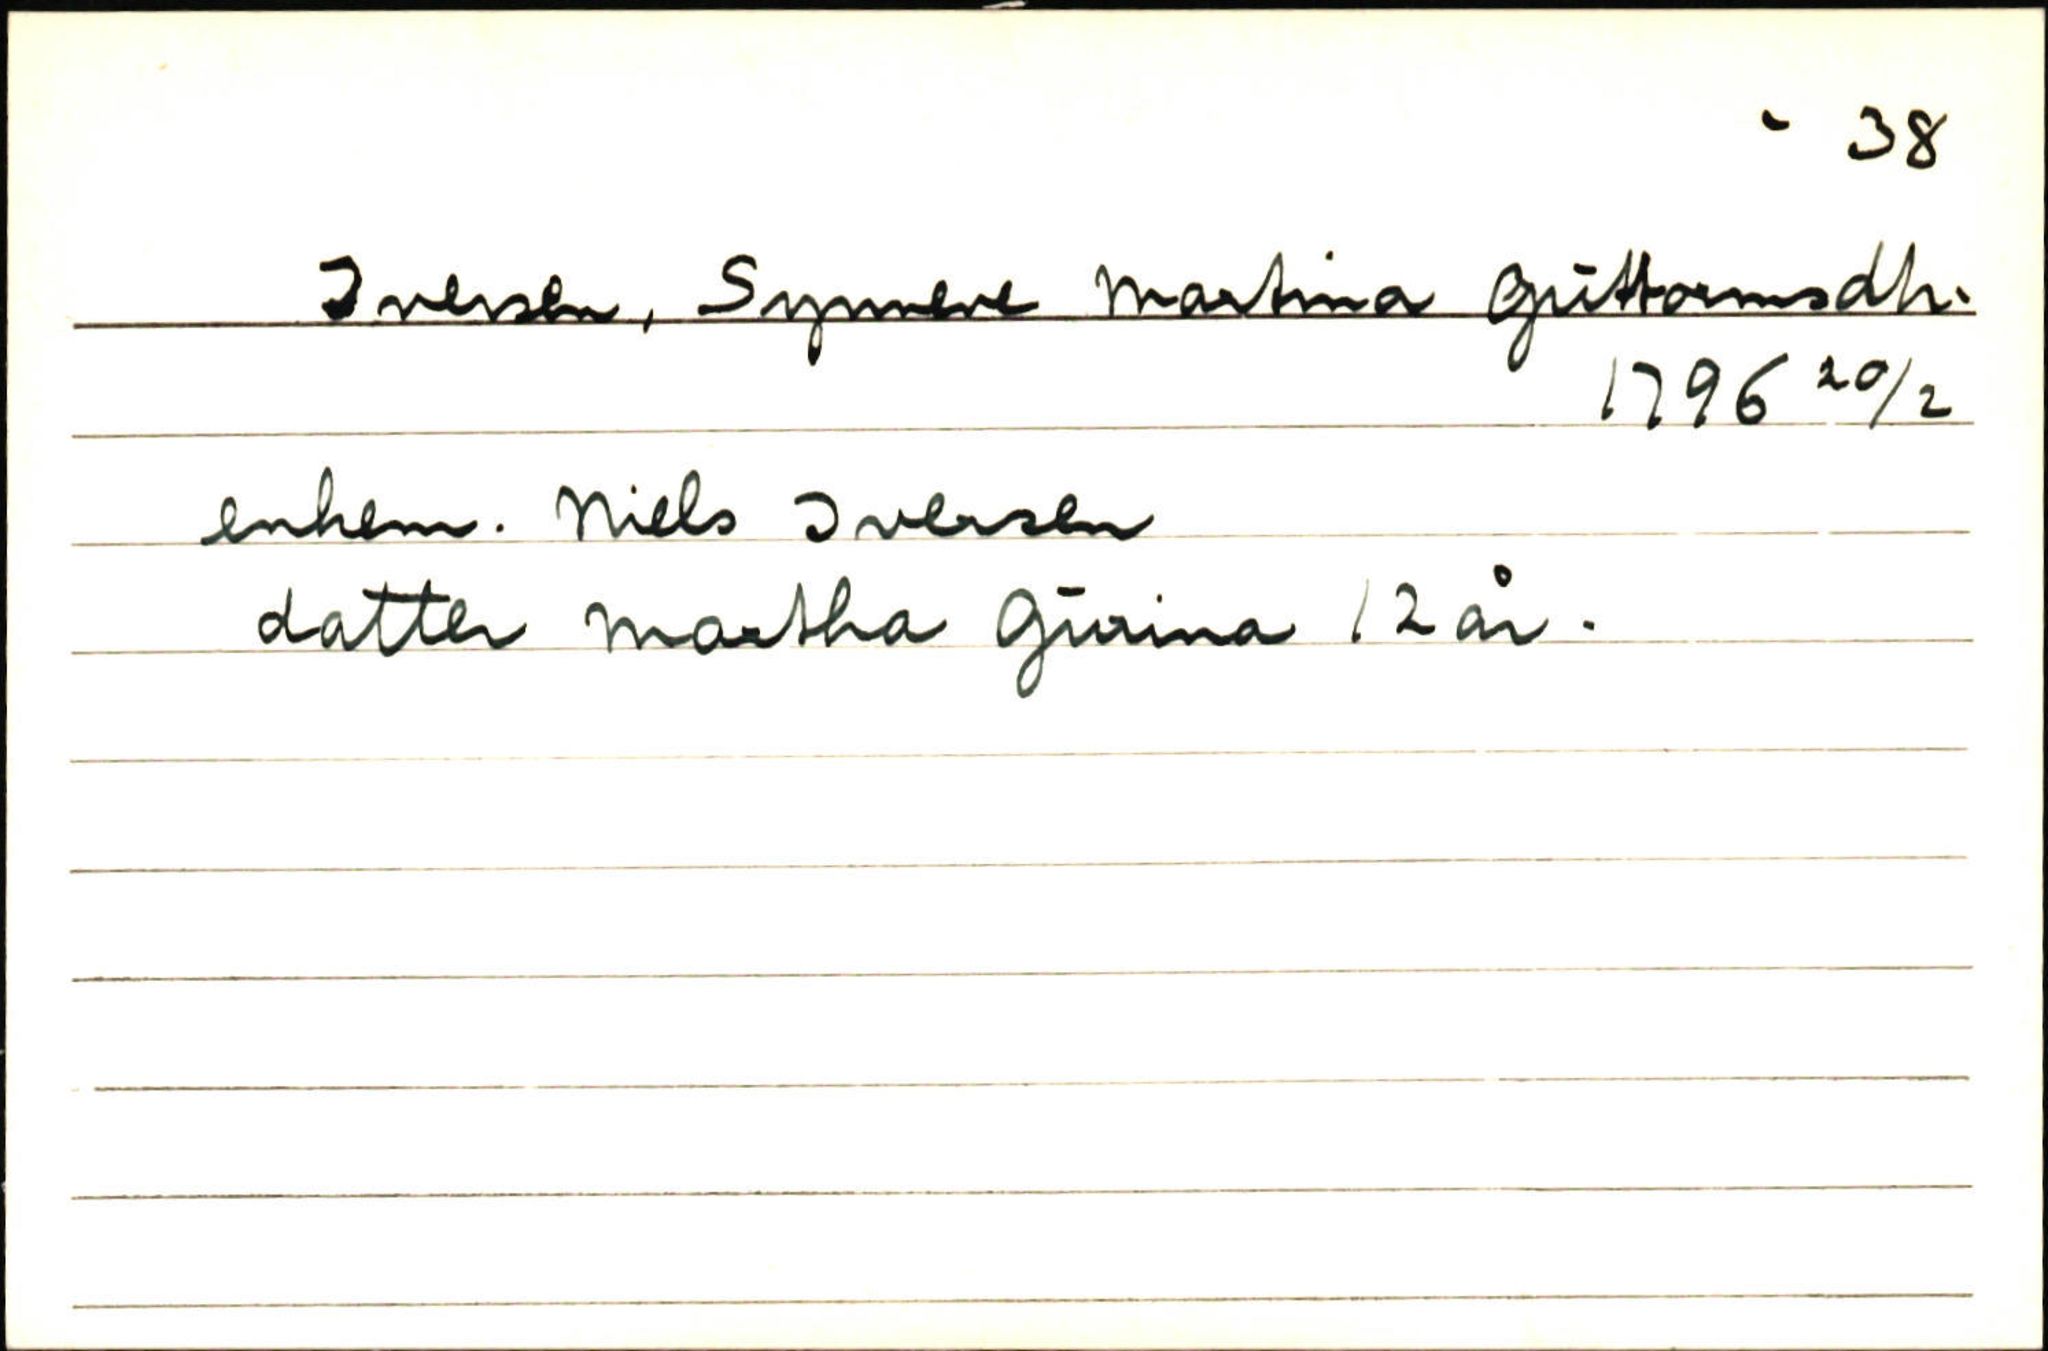 - 38
Iversen, Synneve Martina Guttormsdtr.
1796 20/2
enkem. Niels Iversen
datter Martha Gurina 12 år.